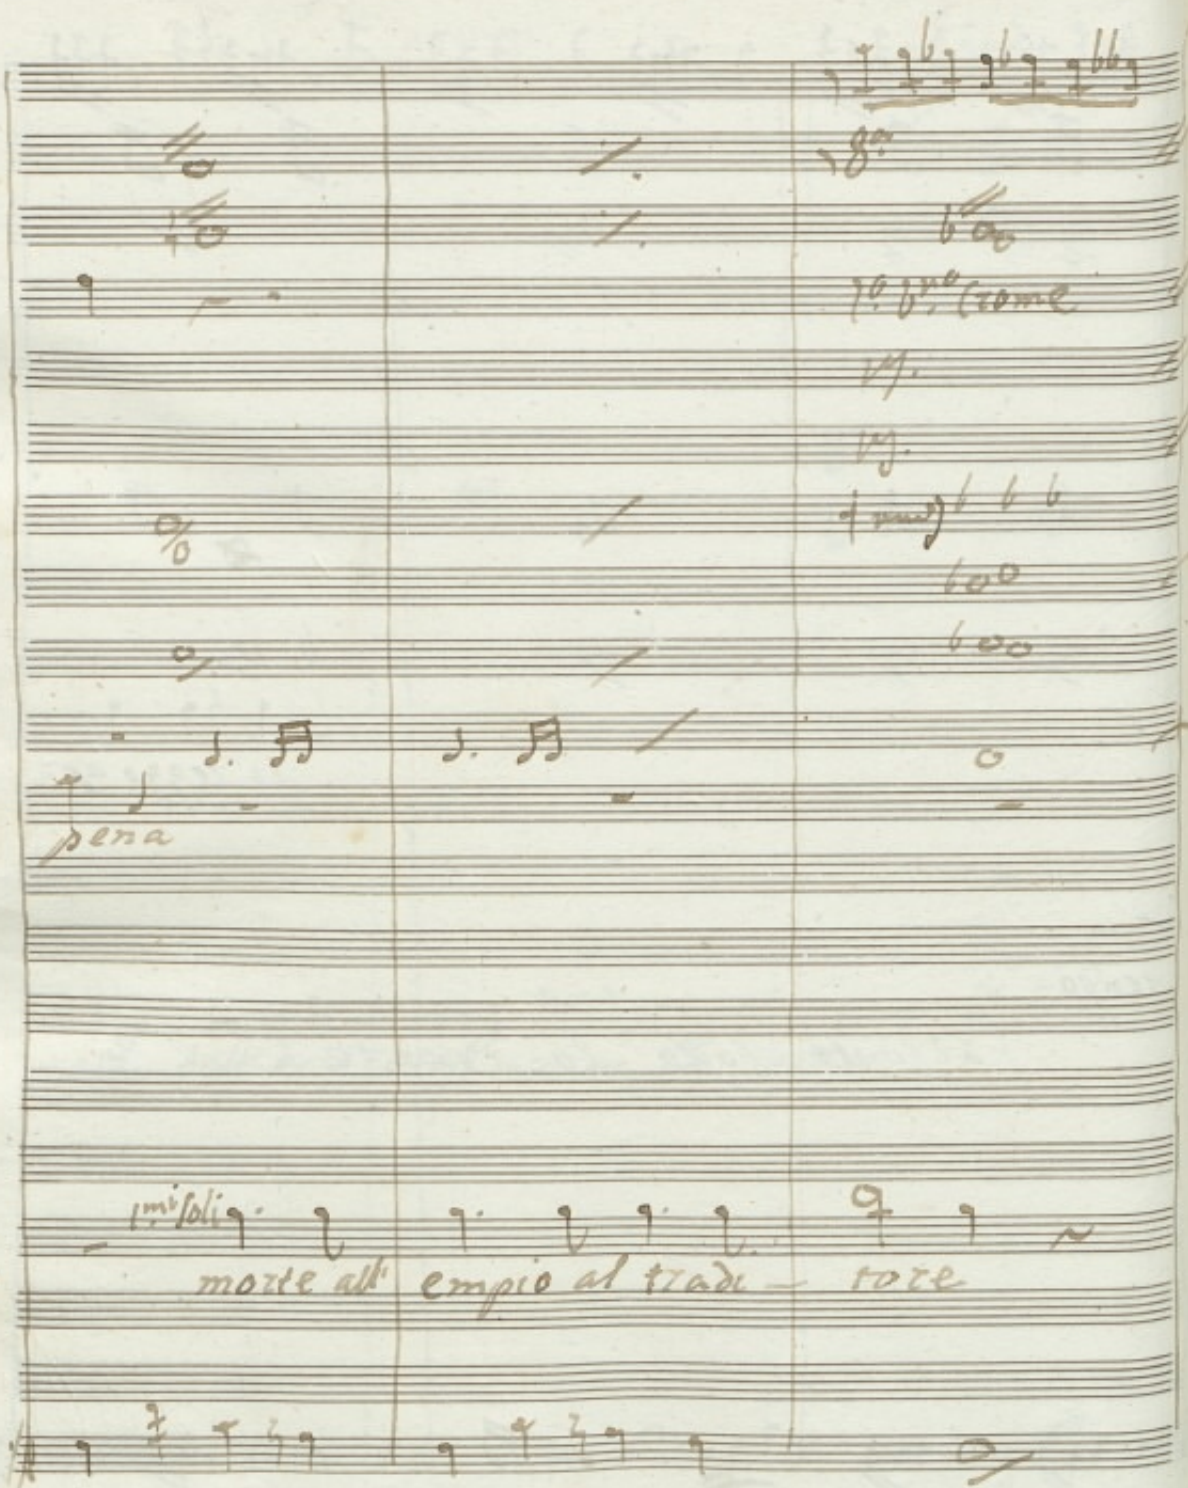 8a
1o vno Crome
pena
1mi Soli
morte all' empio al tradi - tore